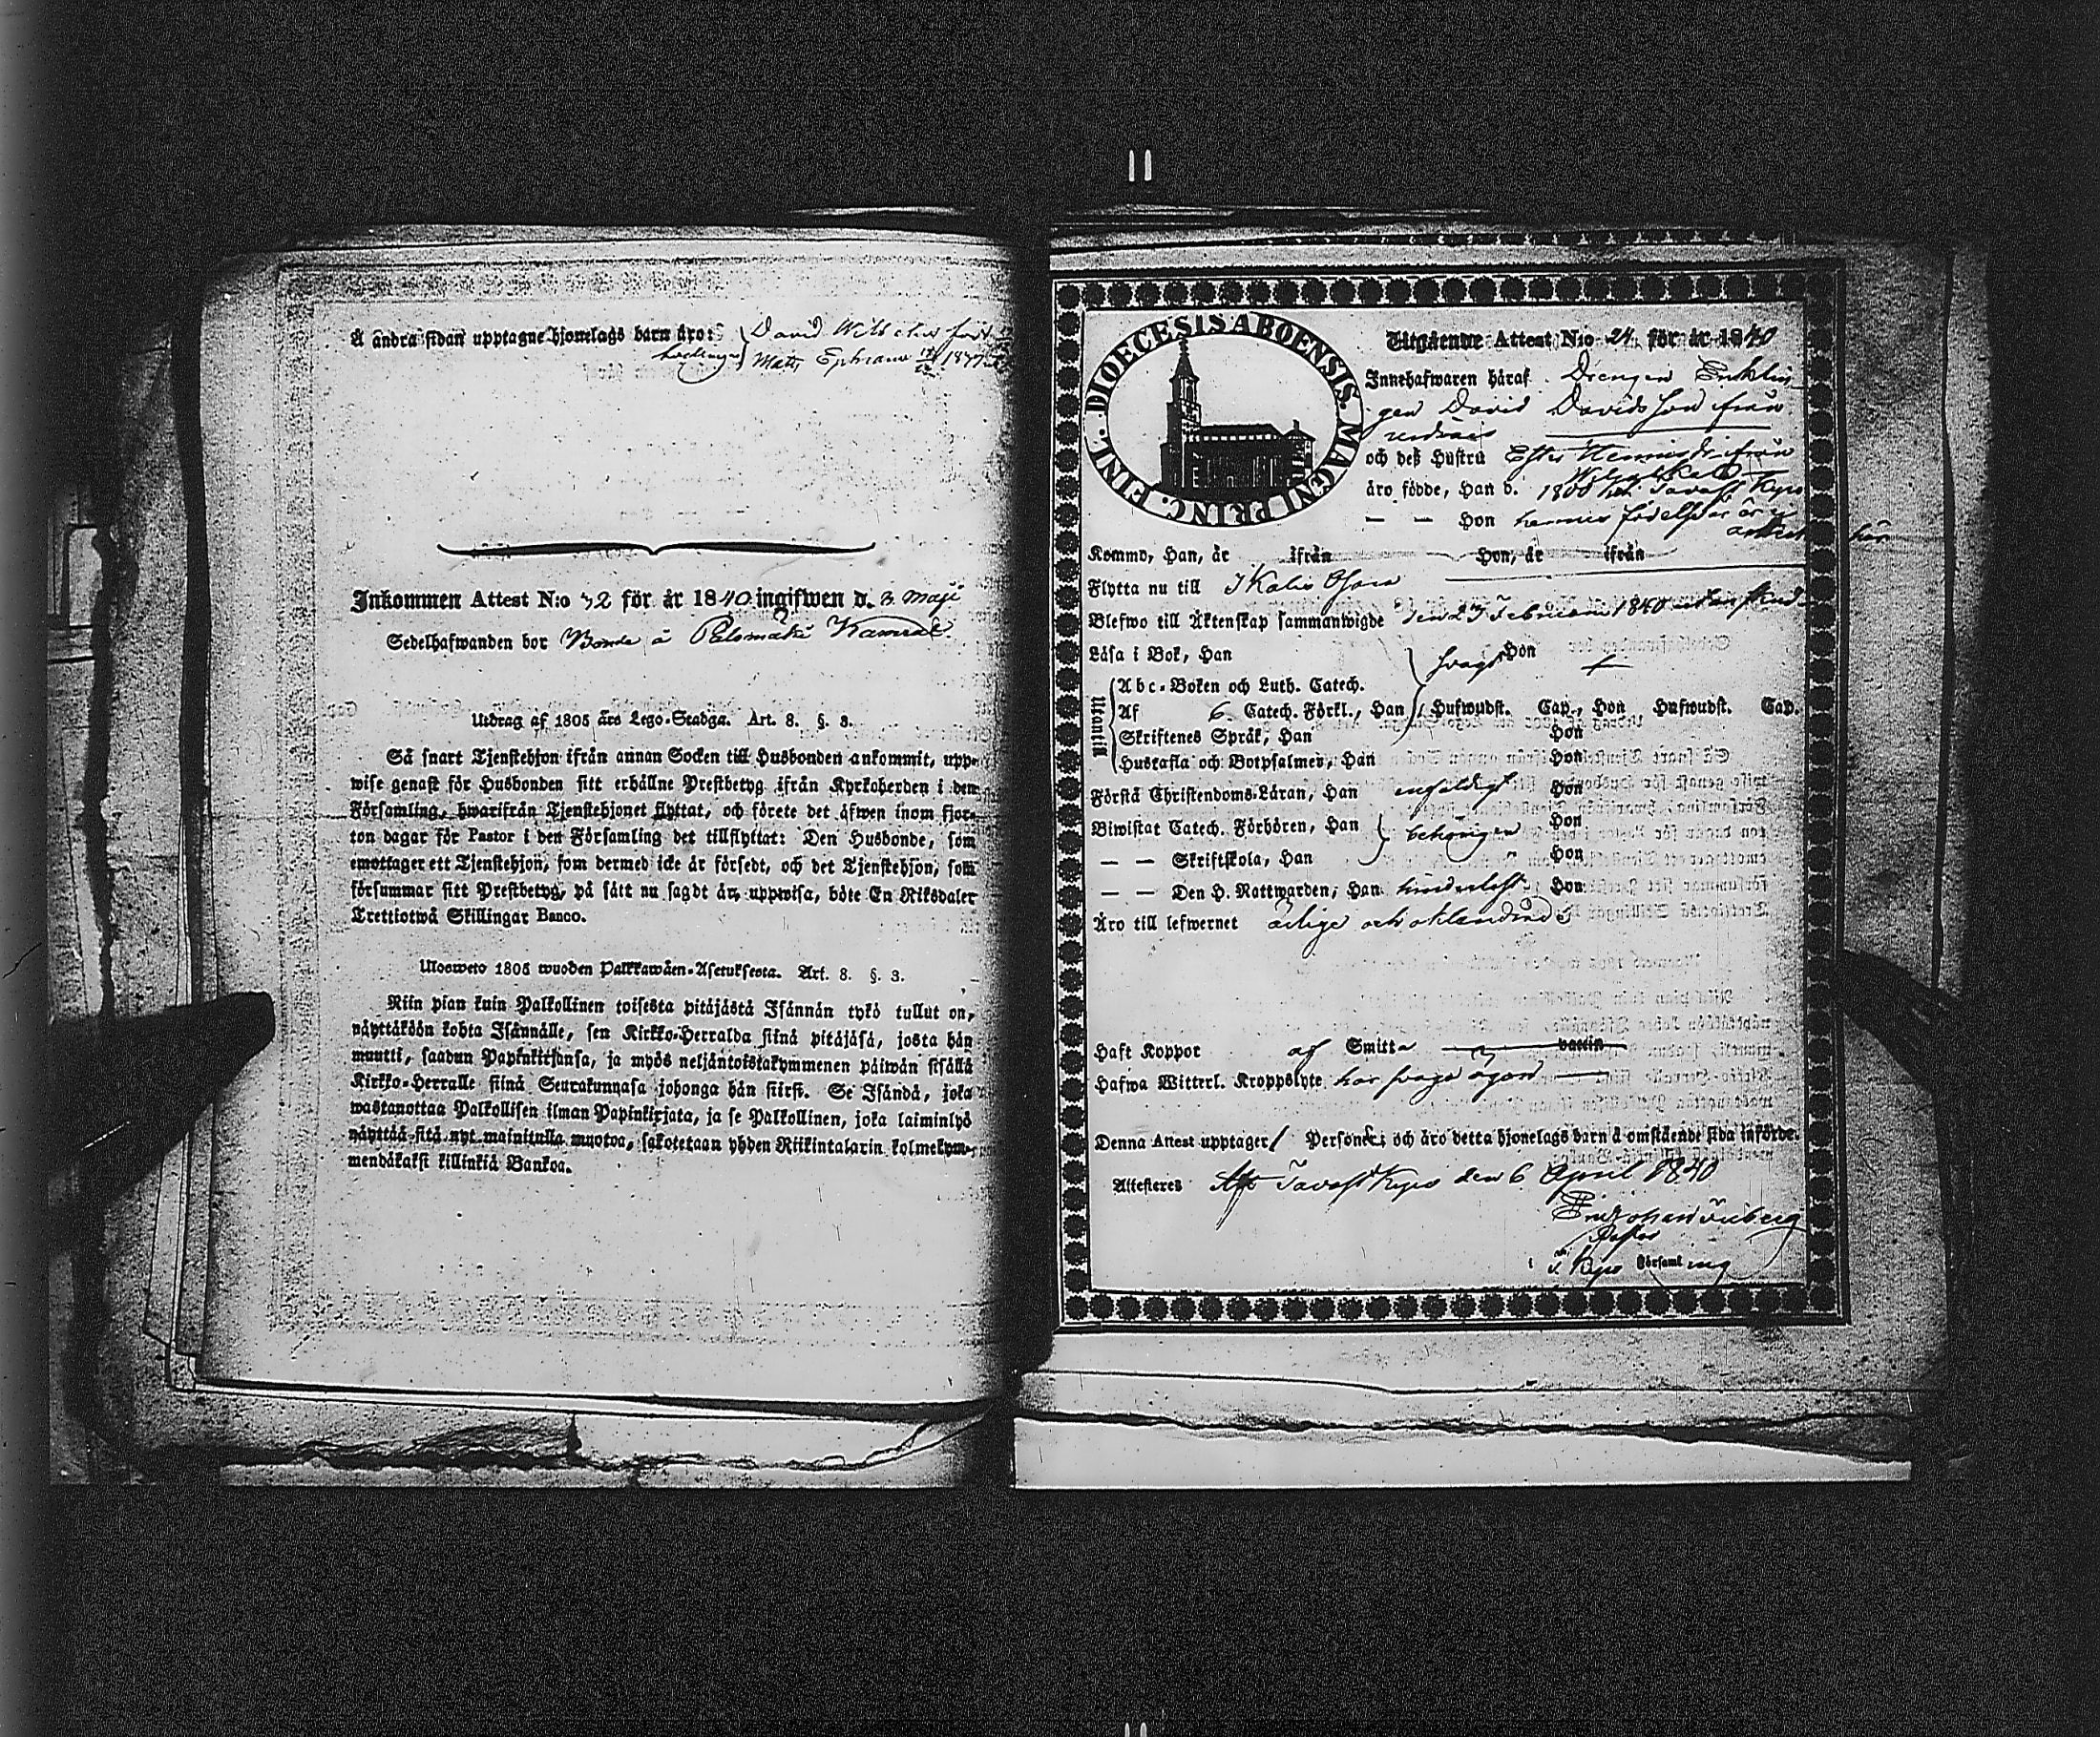 Å andra sidan upptagne hjonelags barn äro: David Wilhelm
Mats Ephraim
Inkommen Attest N:o 42 för år 1840 ingifwen d. 3 maji
Sedelhafwanden bor Bonde å Palomäki
Utdrag af 1805 års Lego-Stadga. Art. 8. §. 3.
Så snart Tjenstehjon ifrån annan Socken till Husbonden ankommit, upp-
wise genast för Husbonden sitt erhållne Prestbetyg ifrån Kyrkoherden i den
Församling, hwarifrån Tjenstehjonet flyttat, och förete det äfwen inom fjor-
ton dagar för Pastor i den Församling det tillflyttat: Den Husbonde, som
emottager ett Tjenstehjon, som dermed icke är försedt, och det Tjenstehjon, som
försummar sitt Prestbetyg, på sätt nu sagdt är, uppwisa, böte En Riksdaler
Trettiotwå Skillingar Banco.
Ulosweto 1805 wuoden Palkkawäen-Asetuksesta. Art. 8. §. 3.
Niin pian kuin Palkollinen toisesta pitäjästä Isännän tykö tullut on,
näyttäköön kohta Isännälle, sen Kirkko-Herralda siinä pitäjäsä, josta hän
muutti, saadun Papinkirjansa, ja myös neljäntoistakymmenen päiwän sisällä
Kirkko-Herralle siinä Seurakunnasa johonga hän siirsi. Se Isändä, joka
wastanottaa Palkollisen ilman Papinkirjata, ja se Palkollinen, joka laiminlyö
näyttää sitä nyt mainitulla muotoa, sakotetaan yhden Riikintalarin kolmekym-
mendäkaksi killinkiä Bankoa.
DIOECESIS ABOENSIS. MAGNI PRINC. FINL.
Utgående Attest N:o 24 för år 1840
Innehafwaren häraf Drengen Enklin-
gen David Davidsson från
och deß Hustru Ester Henricsdr ifrån
äro födde, Han d. 1800 Tavast Kyro
— — Hon hennes födelseår är ej
här
Kommo, Han, år ifrån Hon, år ifrån
Flytta nu till Ikalis
Blefwo till Äktenskap sammanwigde den 23 Februarii 1840
Läsa i Bok, Han svagt Hon
Utantill
Abc-Boken och Luth. Catech.
Af 6. Catech. Förkl., Han Hufwudst. Cap., Hon Hufwudst. Cap.
Skriftenes Språk, Han Hon
Hustafla och Botpsalmer, Han Hon
Förstå Christendoms-Läran, Han enfaldigt Hon
Biwistat Catech. Förhören, Han behörigen Hon
— — Skriftskola, Han Hon
— — Den H. Nattwarden, Han hinderlöst Hon
Äro till lefwernet ärlige och oklandrade
Haft Koppor af Smitta vaccin
Hafwa Witterl. Kroppslyte har svage ögon
Denna Attest upptager Personer och äro detta hjonelags barn å omstående sida införde.
Attesteres Af Tavast Kyro den 6 April 1840
Pastor
i T. Kyro Församling